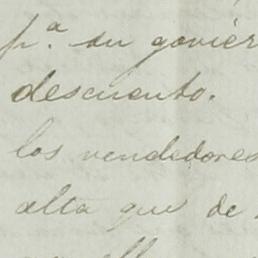 pª. su govier
descuento.
los vendedores
alta que de